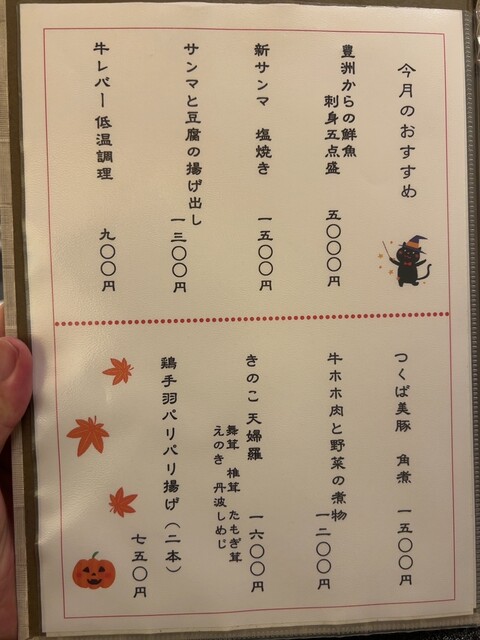 今月のおすすめ
豊洲からの鮮魚
刺身五点盛 五〇〇〇円
新サンマ 塩焼き 一五〇〇円
サンマと豆腐の揚げ出し
一三〇〇円
牛レバー 低温調理 九〇〇円
つくば美豚 角煮 一五〇〇円
牛ホホ肉と野菜の煮物
一二〇〇円
きのこ天婦羅 一六〇〇円
舞茸 椎茸 たもぎ茸
えのき 丹波しめじ
鶏手羽パリパリ揚げ(二本)
七五〇円